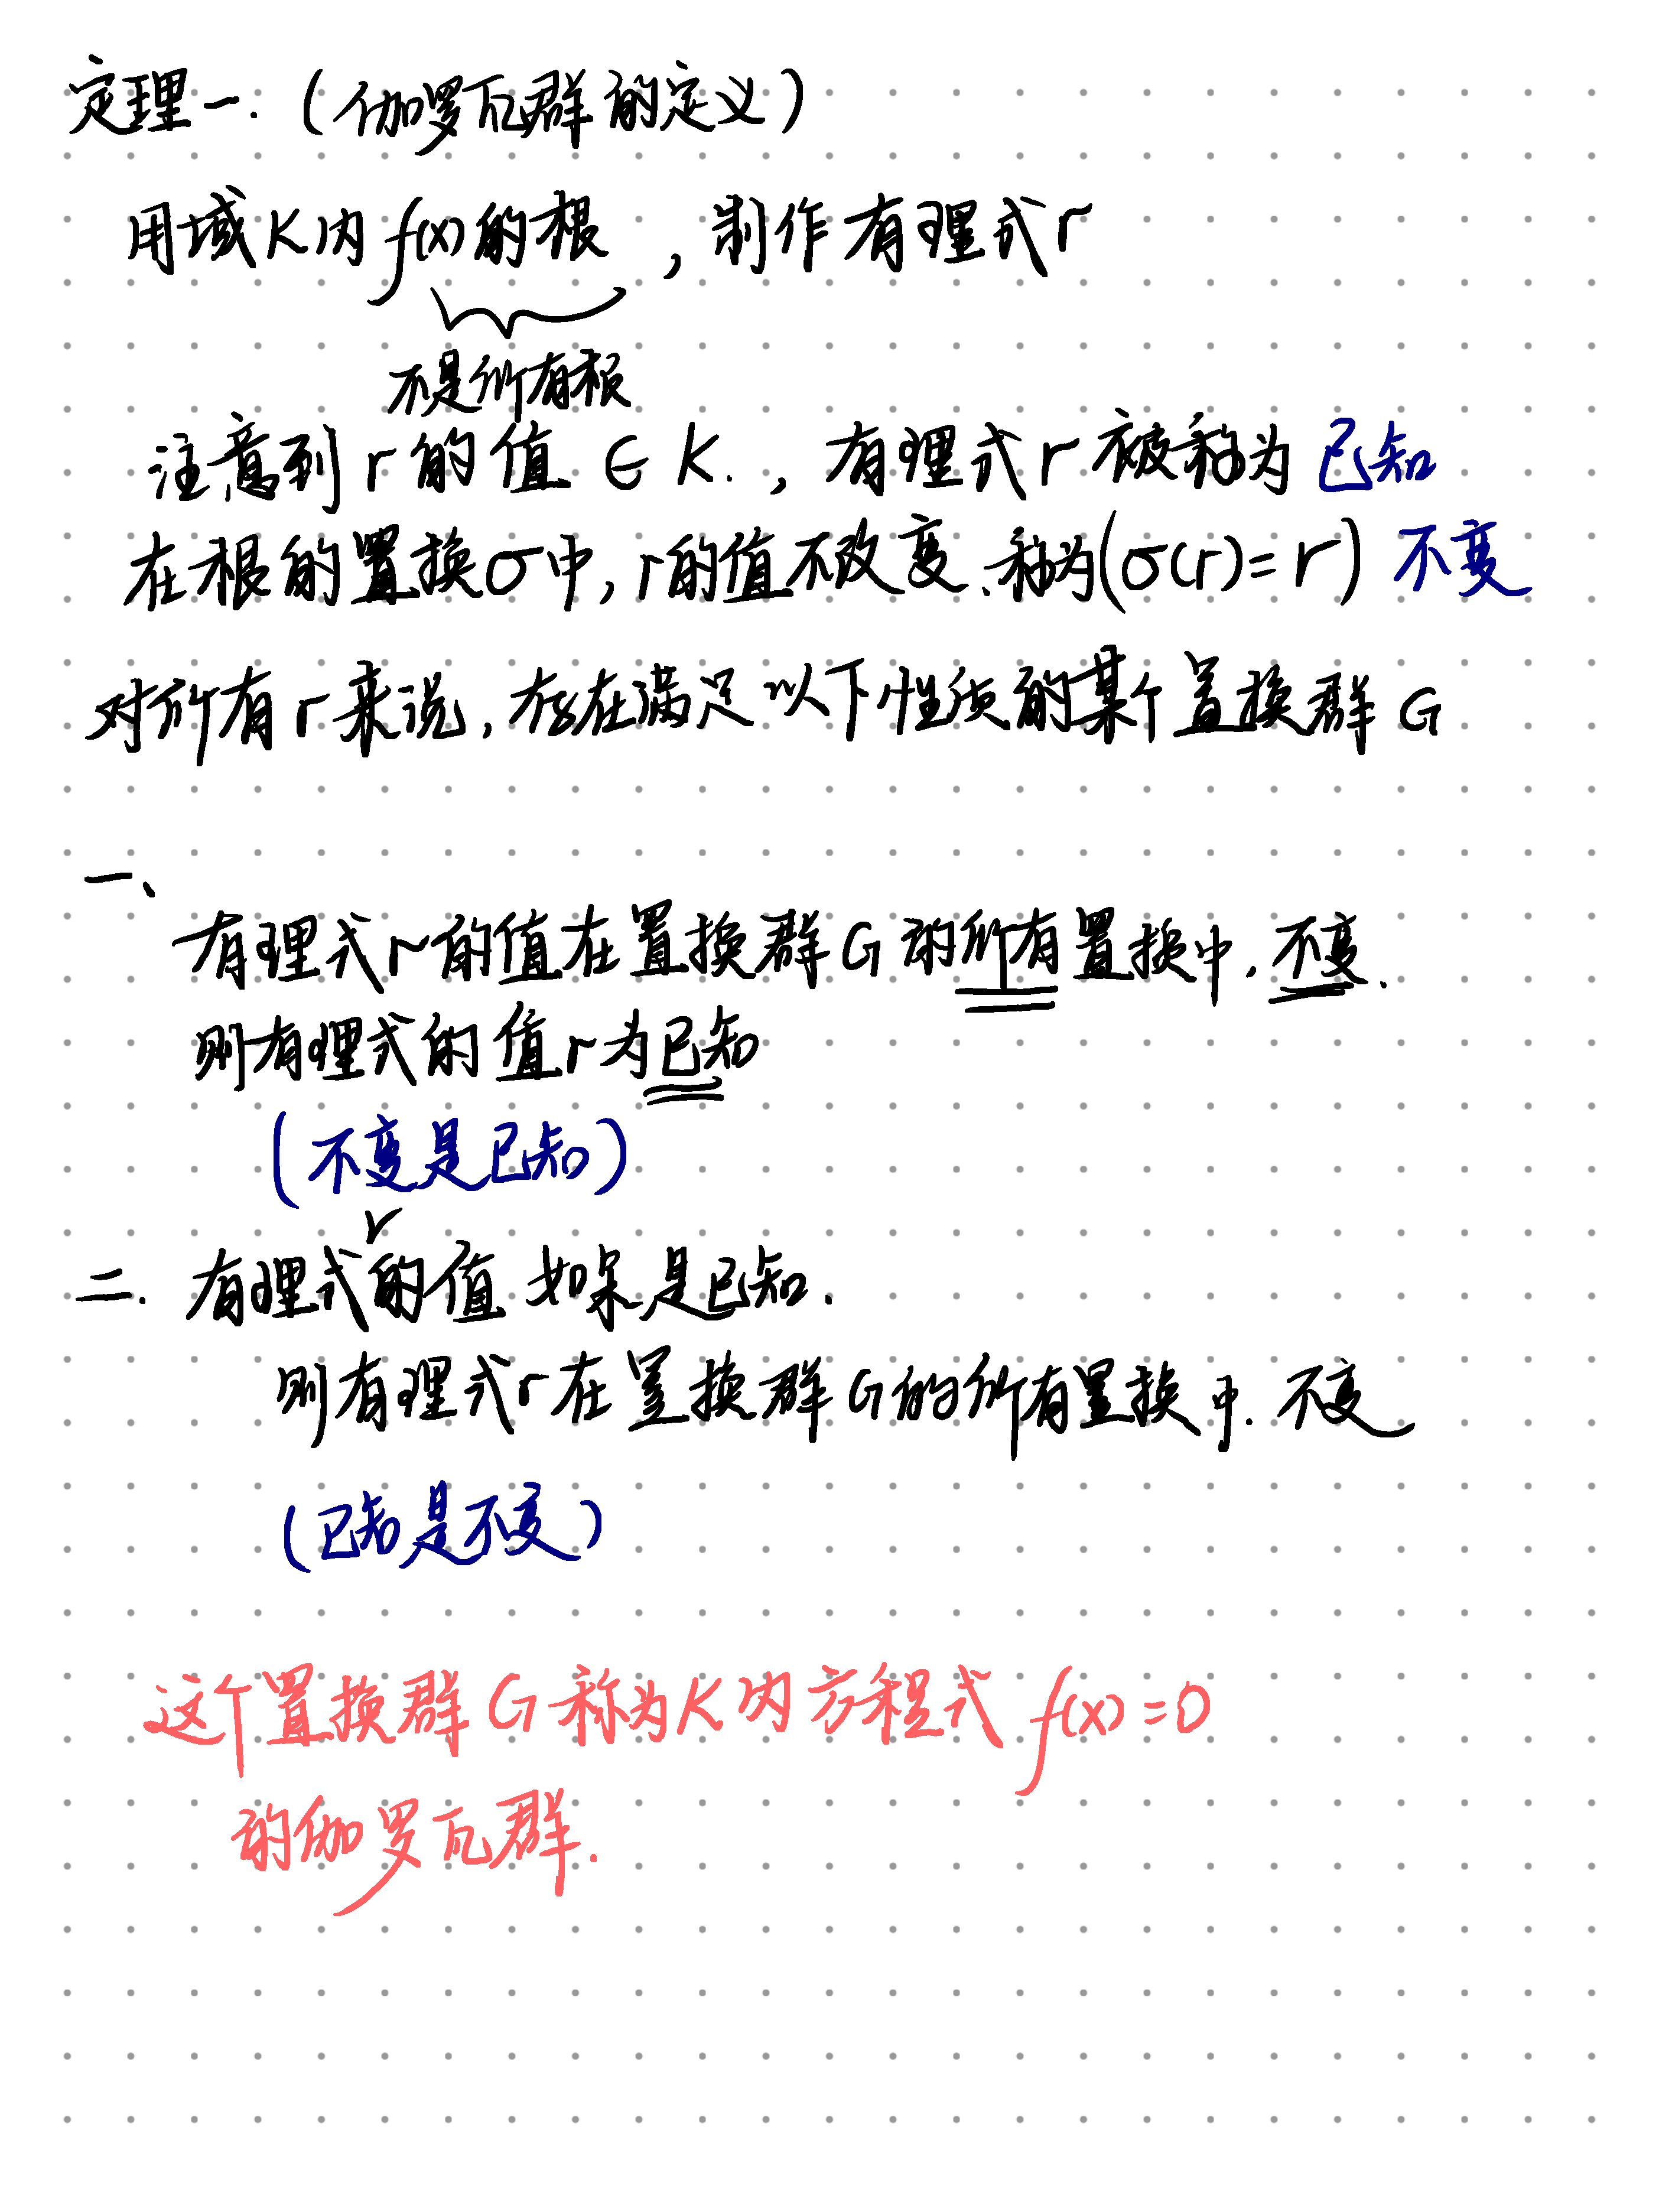 定理一.(伽罗瓦群的定义)
用域K内f(x)的根,制作有理式r
不是所有根
注意到r的值∈K.,有理式r被称为已知
在根的置换σ中,r的值不改变、称为(σ(r)=r)不变
对所有r来说,存在满足以下性质的某个置换群G
一、
有理式r的值在置换群G的所有置换中.不变.
则有理式的值r为已知
(不变是已知)
r
二.有理式的值如果是已知.
则有理式r在置换群G的所有置换中.不变
(已知是不变)
这个置换群G称为K内方程式f(x)=0
的伽罗瓦群.